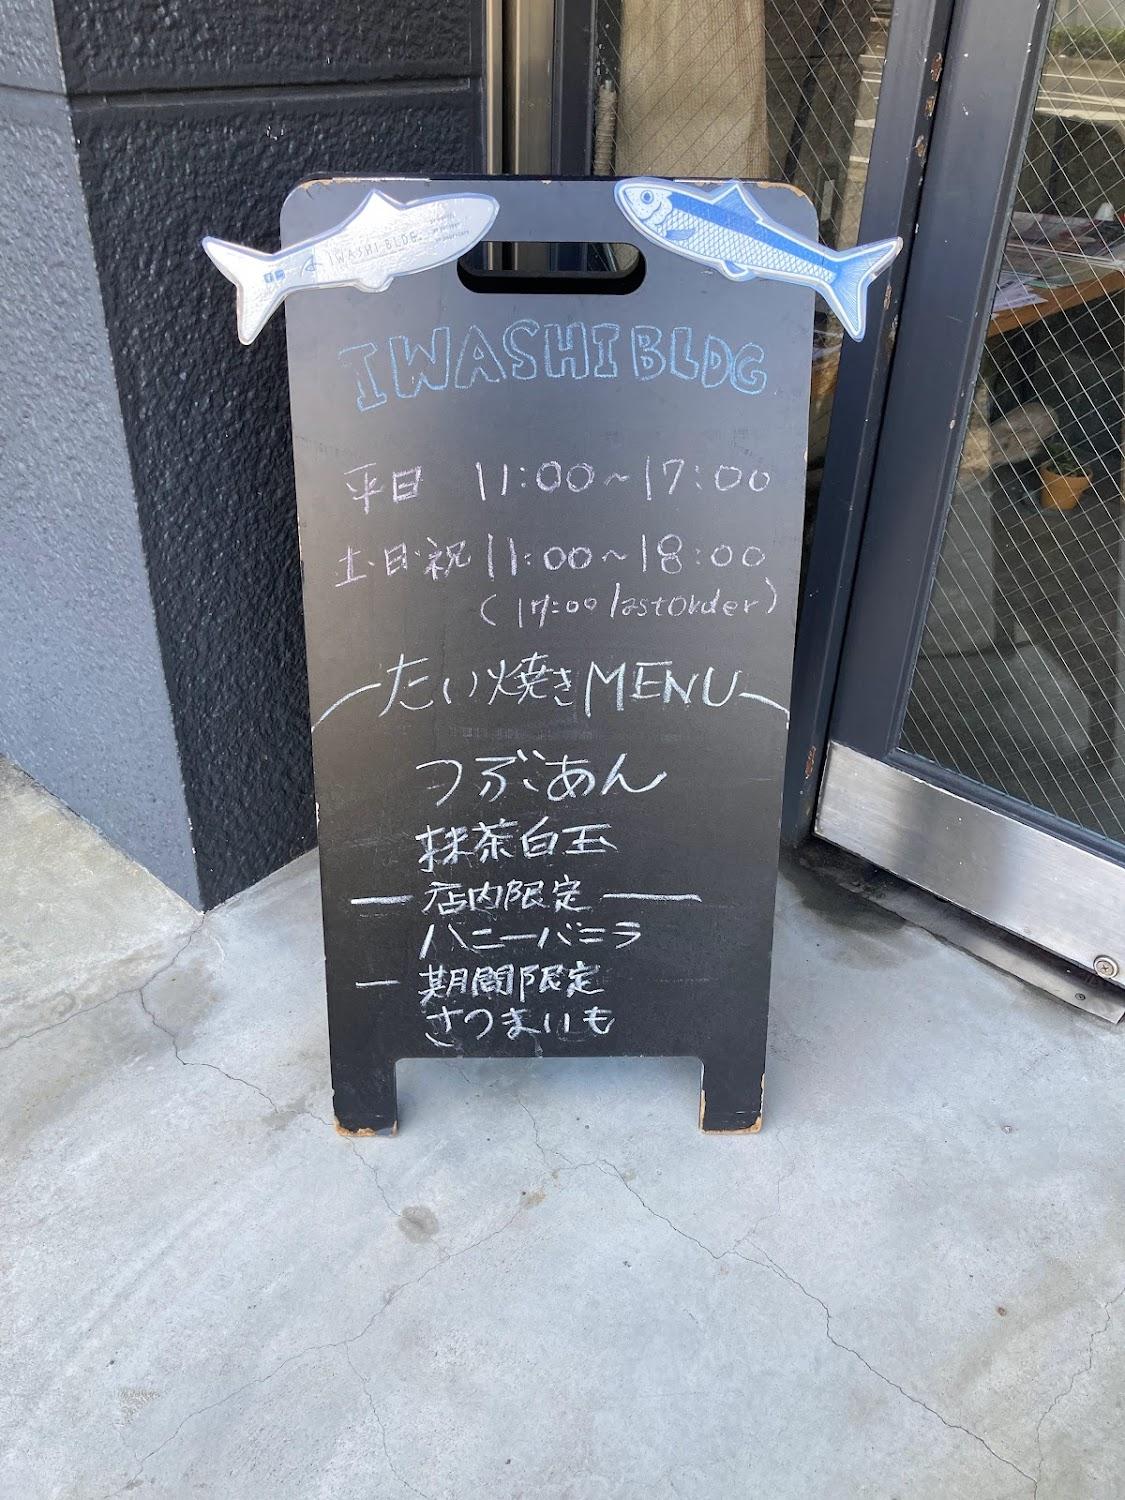 IWASHI BLDG.
IWASHI BLDG
平日 11:00~17:00
土・日・祝 11:00~18:00
(17:00 last order)
たい焼きMENU
つぶあん
抹茶白玉
店内限定
ハニーバニラ
期間限定
さつまいも